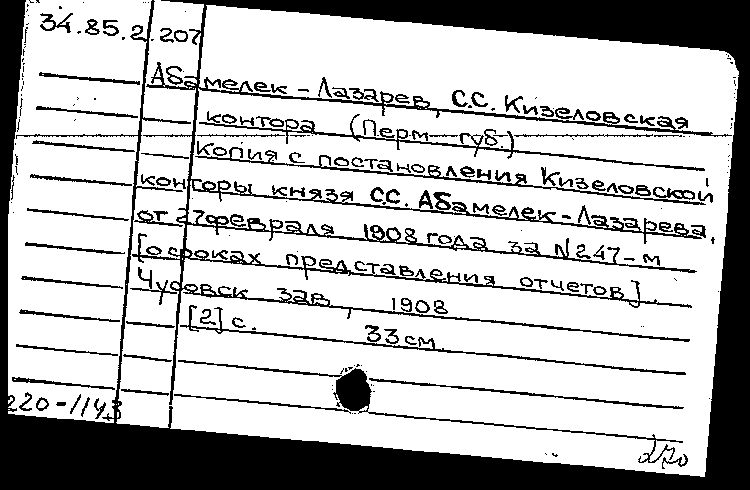 34.85.2.207
Абамелек-Лазарев, С.С. Кизеловская
контора (Перм. губ.)
Копия с постановления Кизеловской
конторы князя С.С. Абамелек-Лазарева,
от 27 февраля 1908 года за №247-м
[о сроках представления отчетов].
Чусовск зав, 1908
[2] с. 33 см
220-1143
270